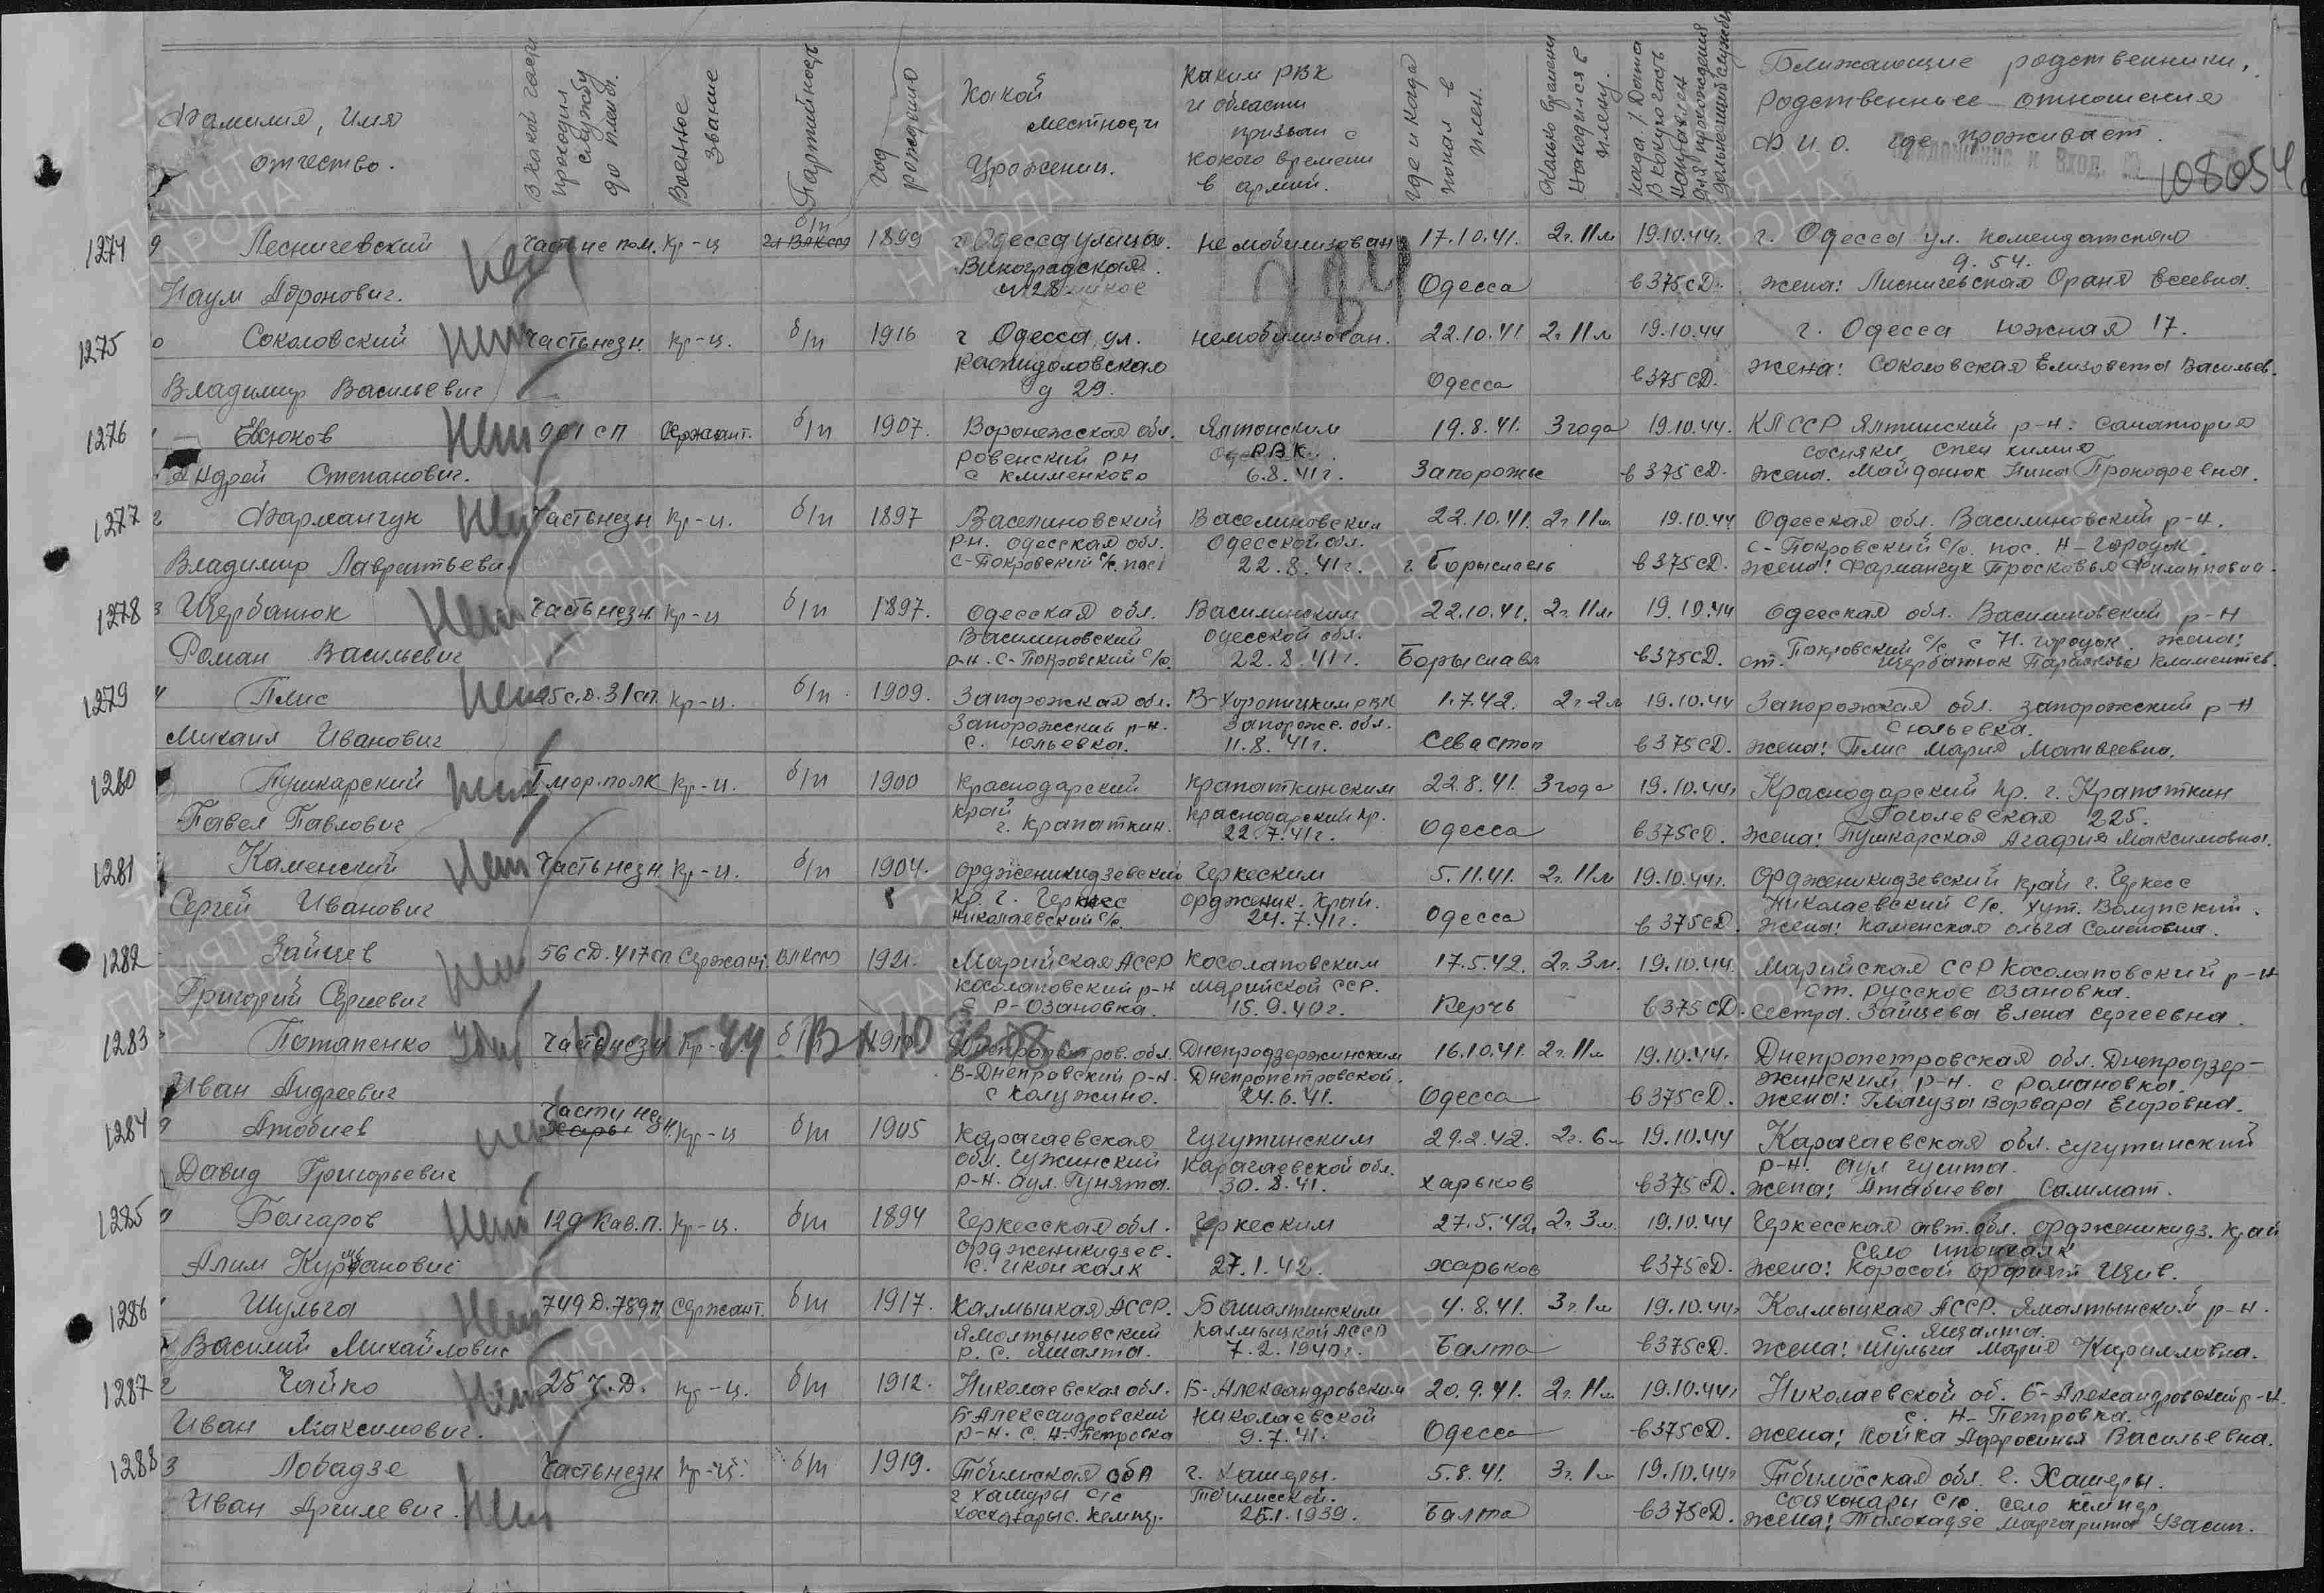 Фамилия, имя отчество.
В какой части проходил службу до плена.
Военное звание
Партийность
год рождения
Какой местности Уроженец.
Каким РВК и области призван с какого времени в армии.
где и когда попал в плен.
Сколько времени находился в плену.
Ближайшие родственники, родственные отношения Ф.И.О. где проживает.
108054
1274 Лесничевский част не пом. кр-ц б/п 1899 г. Одесса улица немобилизован 17.10.41. 2г. 11м 19.10.44г. г. Одесса ул. Комендатская
Виноградская д. 54.
Наум Абронович. №28 Одесса в 375 сД. жена: Лисничевская Ораня Евсеевна.
1275 Соколовский нет Часть незн. кр-ц. б/п 1916 г Одесса ул. немобилизован. 22.10.41 2г. 11м 19.10.44 г. Одесса Южная 17.
Владимир Васильевич д 29. Одесса в 375 сД. жена: Соколовская Елизовета Васильев.
1276 Евсюков нет 961 сп Сержант. б/п 1907. Воронежская обл. Ялтонским 19.8.41. 3 года 19.10.44. КАССР Ялтинский р-н. санатория
Ровенский рн РВК.
Андрей Степанович. с Клименково 6.8.41г. Запорожье в 375 сД. жена. Майданюк Нина Прокофевна.
1277 Фарманчук нет Часть незн кр-ц. б/п 1897 Васелиновский Васелиновским 22.10.41. 2г. 11м. 19.10.44 Одесская обл. Василиновский р-н.
рн. Одесская обл. Одесской обл. с-Покровский с/с. пос. Н-Городок.
Владимир Лаврантьеви с-Покровский с/с. пос 22.8.41г. г. Борыславль в 375 сД. жена: Фарманчук Просковья Филипповна.
1278 Щербатюк нет Часть незн. кр-ц б/п 1897. Одесская обл. Василинским 22.10.41. 2г. 11м 19.10.44 Одесская обл. Василиновский р-н
Василиновский Одесской обл. Покровский с/с с Н. городок. жена:
Роман Васильевич р-н. с-Покровский с/с. 22.8.41г. Борыславл в 375 сД. ст. Щербатюк Парасковья Климентев.
1279 Плис нет 95 с.д. 31 сп. кр-ц. б/п. 1909. Запорожская обл. В-Хоротицким РВК 1.7.42. 2г. 2м 19.10.44 Запорожская обл. запорожский р-н
Запорожский р-н. Запорожс. обл. с Юльевка.
Михаил Иванович с. Юльевка. 11.8.41г. Севастоп в 375 сД. жена: Плис Мария Матвеевна.
1280 Пушкарский нет 1 мор. полк кр-ц. б/п 1900 Краснодарский Крапаткинским 22.8.41. 3 года 19.10.44г. Краснодарский кр. г. Крапоткин
край Краснодарский кр. Гоголевская 225.
Павел Павлович г. Крапаткин. 22.7.41г. Одесса в 375 сД. жена: Пушкарская Агафия Максимовна.
1281 Каменский нет Часть незн. кр-ц. б/п 1904. Ордженикидзевский Черкеским 5.11.41. 2г. 11м 19.10.44г. Ордженикидзевский край г. Черкесс
кр. г. Черкесс ордженик. край. Николаевский с/с. хут.
Сергей Иванович Николаевский с/с. 24.7.41г. Одесса в 375 сД. жена: Каменская Ольга Семеновна.
1282 Зайцев нет 56 сД. 417 сп Сержант. ВЛКСМ 1921. Марийская АССР Косолаповским 17.5.42. 2г. 3м. 19.10.44. Марийская ССР Косолаповский р-н
Косолаповский р-н марийской ССР. ст. Русское Озановка.
Григорий Сергеевич с Р-Озановка. 15.9.40г. Керчь в 375 сД. Сестра. Зайцева Елена Сергеевна.
1283 Потапенко Часть незн кр-ц. б/п Днепропетров. обл. Днепродзержинским 16.10.41. 2г. 11м 19.10.44г. Днепропетровская обл. Днепродзер-
В-Днепровский р-н. Днепропетровской. жинский р-н. с Романовка.
Иван Андреевич с Калужино. 24.6.41. Одесса в 375 сД. жена: Глагуза Варвара Егоровна.
1284 Атабиев нет Части незн. кр-ц б/п 1905 Карачаевская Чугутинским 29.2.42. 2г. 6м 19.10.44 Карачаевская обл. Чугутинский
обл. Карачаевской обл. р-н. аул
Давид Григорьевич р-н. аул. 30.8.41. Харьков в 375 сД. жена: Атабиева Салимат.
1285 Болгаров нет 129 кав. п. кр-ц. б/п 1894 Черкесская обл. Черкеским 27.5.42. 2г. 3м. 19.10.44 Черкесская авт. обл. ордженикидз. край
ордженикидзев. село
Алим с. Икон халк 27.1.42. Харьков в 375 сД. жена:
1286 Шульга нет 74 9Д. 789 п. Сержант. б/п 1917. Калмыцкая АССР. Башалтинским 4.8.41. 3г. 1м 19.10.44г. Колмыцкая АССР. Ямалтынский р-н.
Ямолтыновский Калмыцкой АССР с. Яшалта.
Василий Михайлович р. с. Яшалта. 7.2.1940г. Балта в 375 сД. жена: Шульга Мария Кирилловна.
1287 Чайко нет 25 ч. Д. кр-ц. б/п 1912. Николаевская обл. Б-Александровским 20.9.41. 2г. 11м 19.10.44г Николаевской об. Б-Александровский р-н.
Б-Александровский Николаевской с. Н-Петровка.
Иван Максимович. р-н. с. Н-Петровка 9.7.41. Одесса в 375 сД. жена: Койка Аффросинья Васильевна.
1288 Лобадзе нет Часть незн кр-ц. б/п 1919. Тбилиская обл г. Хашеры. 5.8.41. 3г. 1м 19.10.44г Тбилисская обл. г. Хашеры.
г Хашуры с/с Тбилисской. с/с. село
Иван Арчилевич. 25.1.1939. Балта в 375 сД. жена: Маргарита